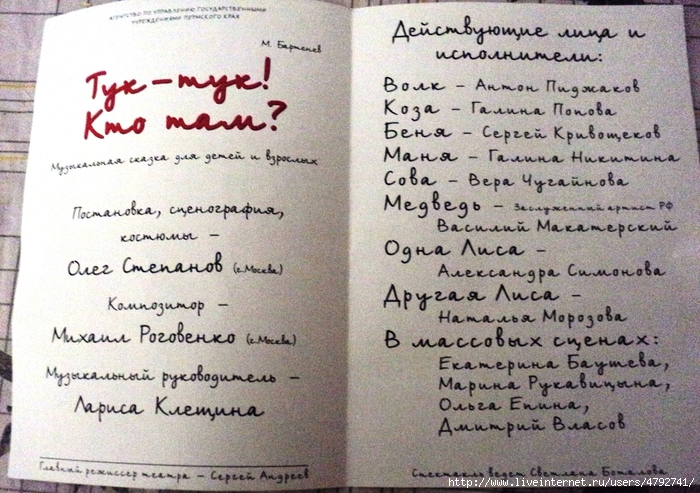 АГЕНТСТВО ПО УПРАВЛЕНИЮ ГОСУДАРСТВЕННЫМИ
УЧРЕЖДЕНИЯМИ ПЕРМСКОГО КРАЯ
М. Бартенев
Тук – тук!
Кто там?
Музыкальная сказка для детей и взрослых
Постановка, сценография,
костюмы –
Олег Степанов (г.Москва)
Композитор –
Михаил Роговенко (г.Москва)
Музыкальный руководитель –
Лариса Клещина
Главный режиссер театра – Сергей Андреев
Действующие лица и
исполнители:
Волк – Антон Пиджаков
Коза – Галина Попова
Беня – Сергей Кривощеков
Маня – Галина Никитина
Сова – Вера Чугайнова
Медведь – Заслуженный артист РФ
Василий Макатерский
Одна Лиса –
Александра Симонова
Другая Лиса –
Наталья Морозова
В массовых сценах:
Екатерина Баушева,
Марина Рукавицына,
Ольга Епина,
Дмитрий Власов
Спектакль ведет Светлана Боталова
http://www.liveinternet.ru/users/4792741/